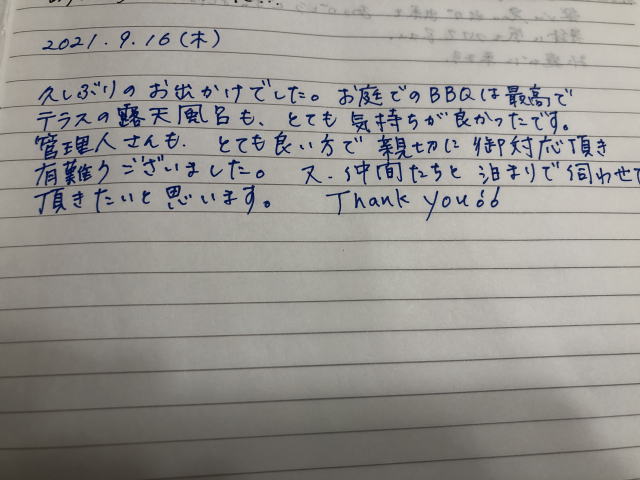 2021.9.16(木)
久しぶりのお出かけでした。お庭でのBBQは最高で
テラスの露天風呂も、とても気持ちが良かったです。
管理人さんも、とても良い方で親切に御対応頂き
有難うございました。又、仲間たちと泊まりで伺わせて
頂きたいと思います。 Thank you